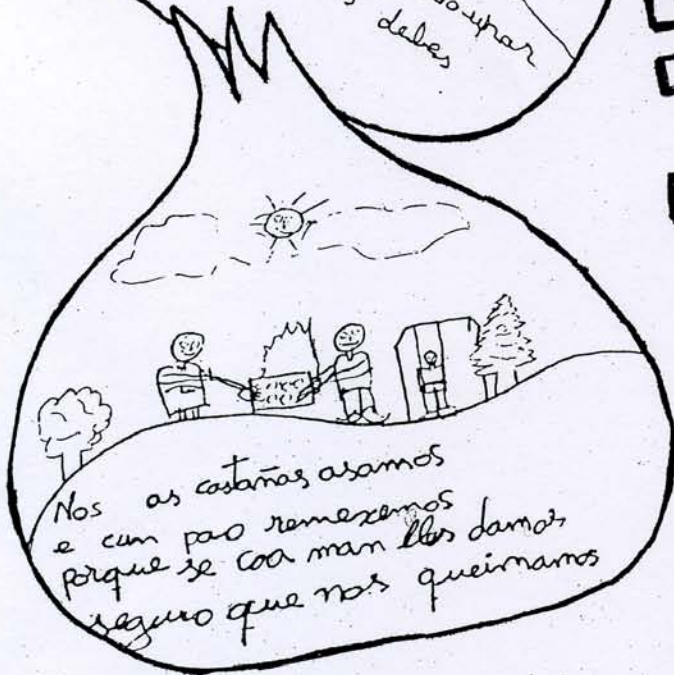 debes
Nos as castañas asamos
e cun pao remexemos
porque se coa man lles damos
seguro que nos queimamos